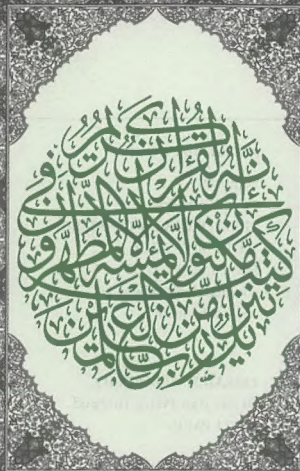 إِنَّهُ لَقُرْآنٌ كَرِيمٌ
فِي
كِتَابٍ مَّكْنُونٍ لَّا يَمَسُّهُ إِلَّا الْمُطَهَّرُونَ
تَنزِيلٌ مِّن رَّبِّ الْعَالَمِينَ